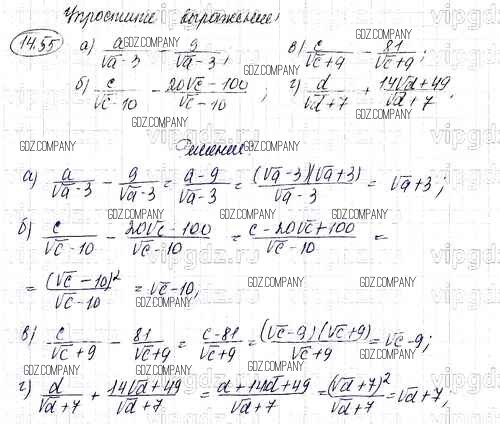 Упростите выражения
14.55 а) a/(√a-3) - 9/(√a-3); в) c/(√c+9) - 81/(√c+9);
б) c/(√c-10) - (20√c-100)/(√c-10); г) d/(√d+7) + (14√d+49)/(√d+7).
Решение
а) a/(√a-3) - 9/(√a-3) = (a-9)/(√a-3) = (√a-3)(√a+3)/(√a-3) = √a+3;
б) c/(√c-10) - (20√c-100)/(√c-10) = (c-20√c+100)/(√c-10) =
= (√c-10)²/(√c-10) = √c-10;
в) c/(√c+9) - 81/(√c+9) = (c-81)/(√c+9) = (√c-9)(√c+9)/(√c+9) = √c-9;
г) d/(√d+7) + (14√d+49)/(√d+7) = (d+14√d+49)/(√d+7) = (√d+7)²/(√d+7) = √d+7;
GDZ.COMPANY
vipgdz.ru